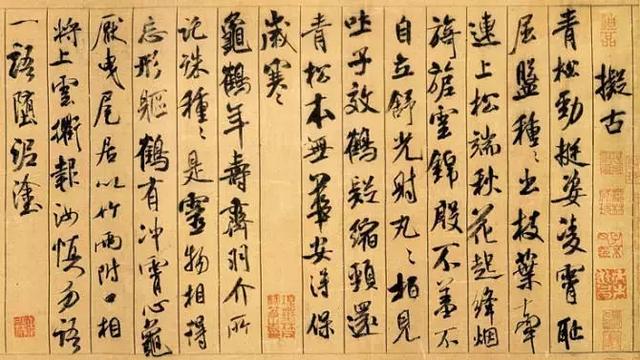 擬古
青松勁挺姿凌霄恥
屈盤種々出枝葉牽
連上松端秋花起絳烟
旖旎雲錦殷不羞不
自立舒光射丸々柏見
吐子效鶴疑縮頸還
青松本無華安得保
歲寒々
龜鶴年壽齊羽介所
託殊種々是靈物相得
忘形軀鶴有沖霄心龜
厭曳尾居以竹兩附口相
將上雲衢報汝慎勿語
一語墮泥塗